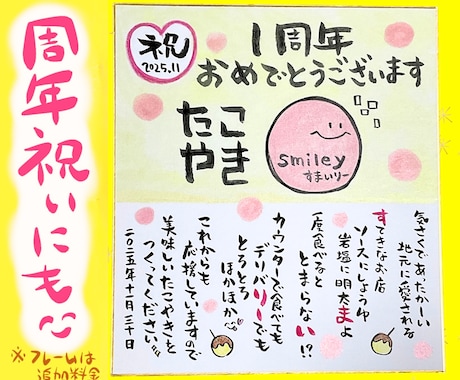 周年祝いにも
※フレームは
追加料金
祝
2025.11
1周年
おめでとうございます
たこ
やき
smiley
すまいりー
気さくであったかーい
地元に愛される
すてきなお店
ソースにしょうゆ
岩塩に明太まよ
一度食べると
とまらない!?
カウンターで食べても
デリバリーでも
とろとろ
ほかほか
これからも
応援していますので
美味しいたこやきを
つくってください
二〇二五年十一月三十日